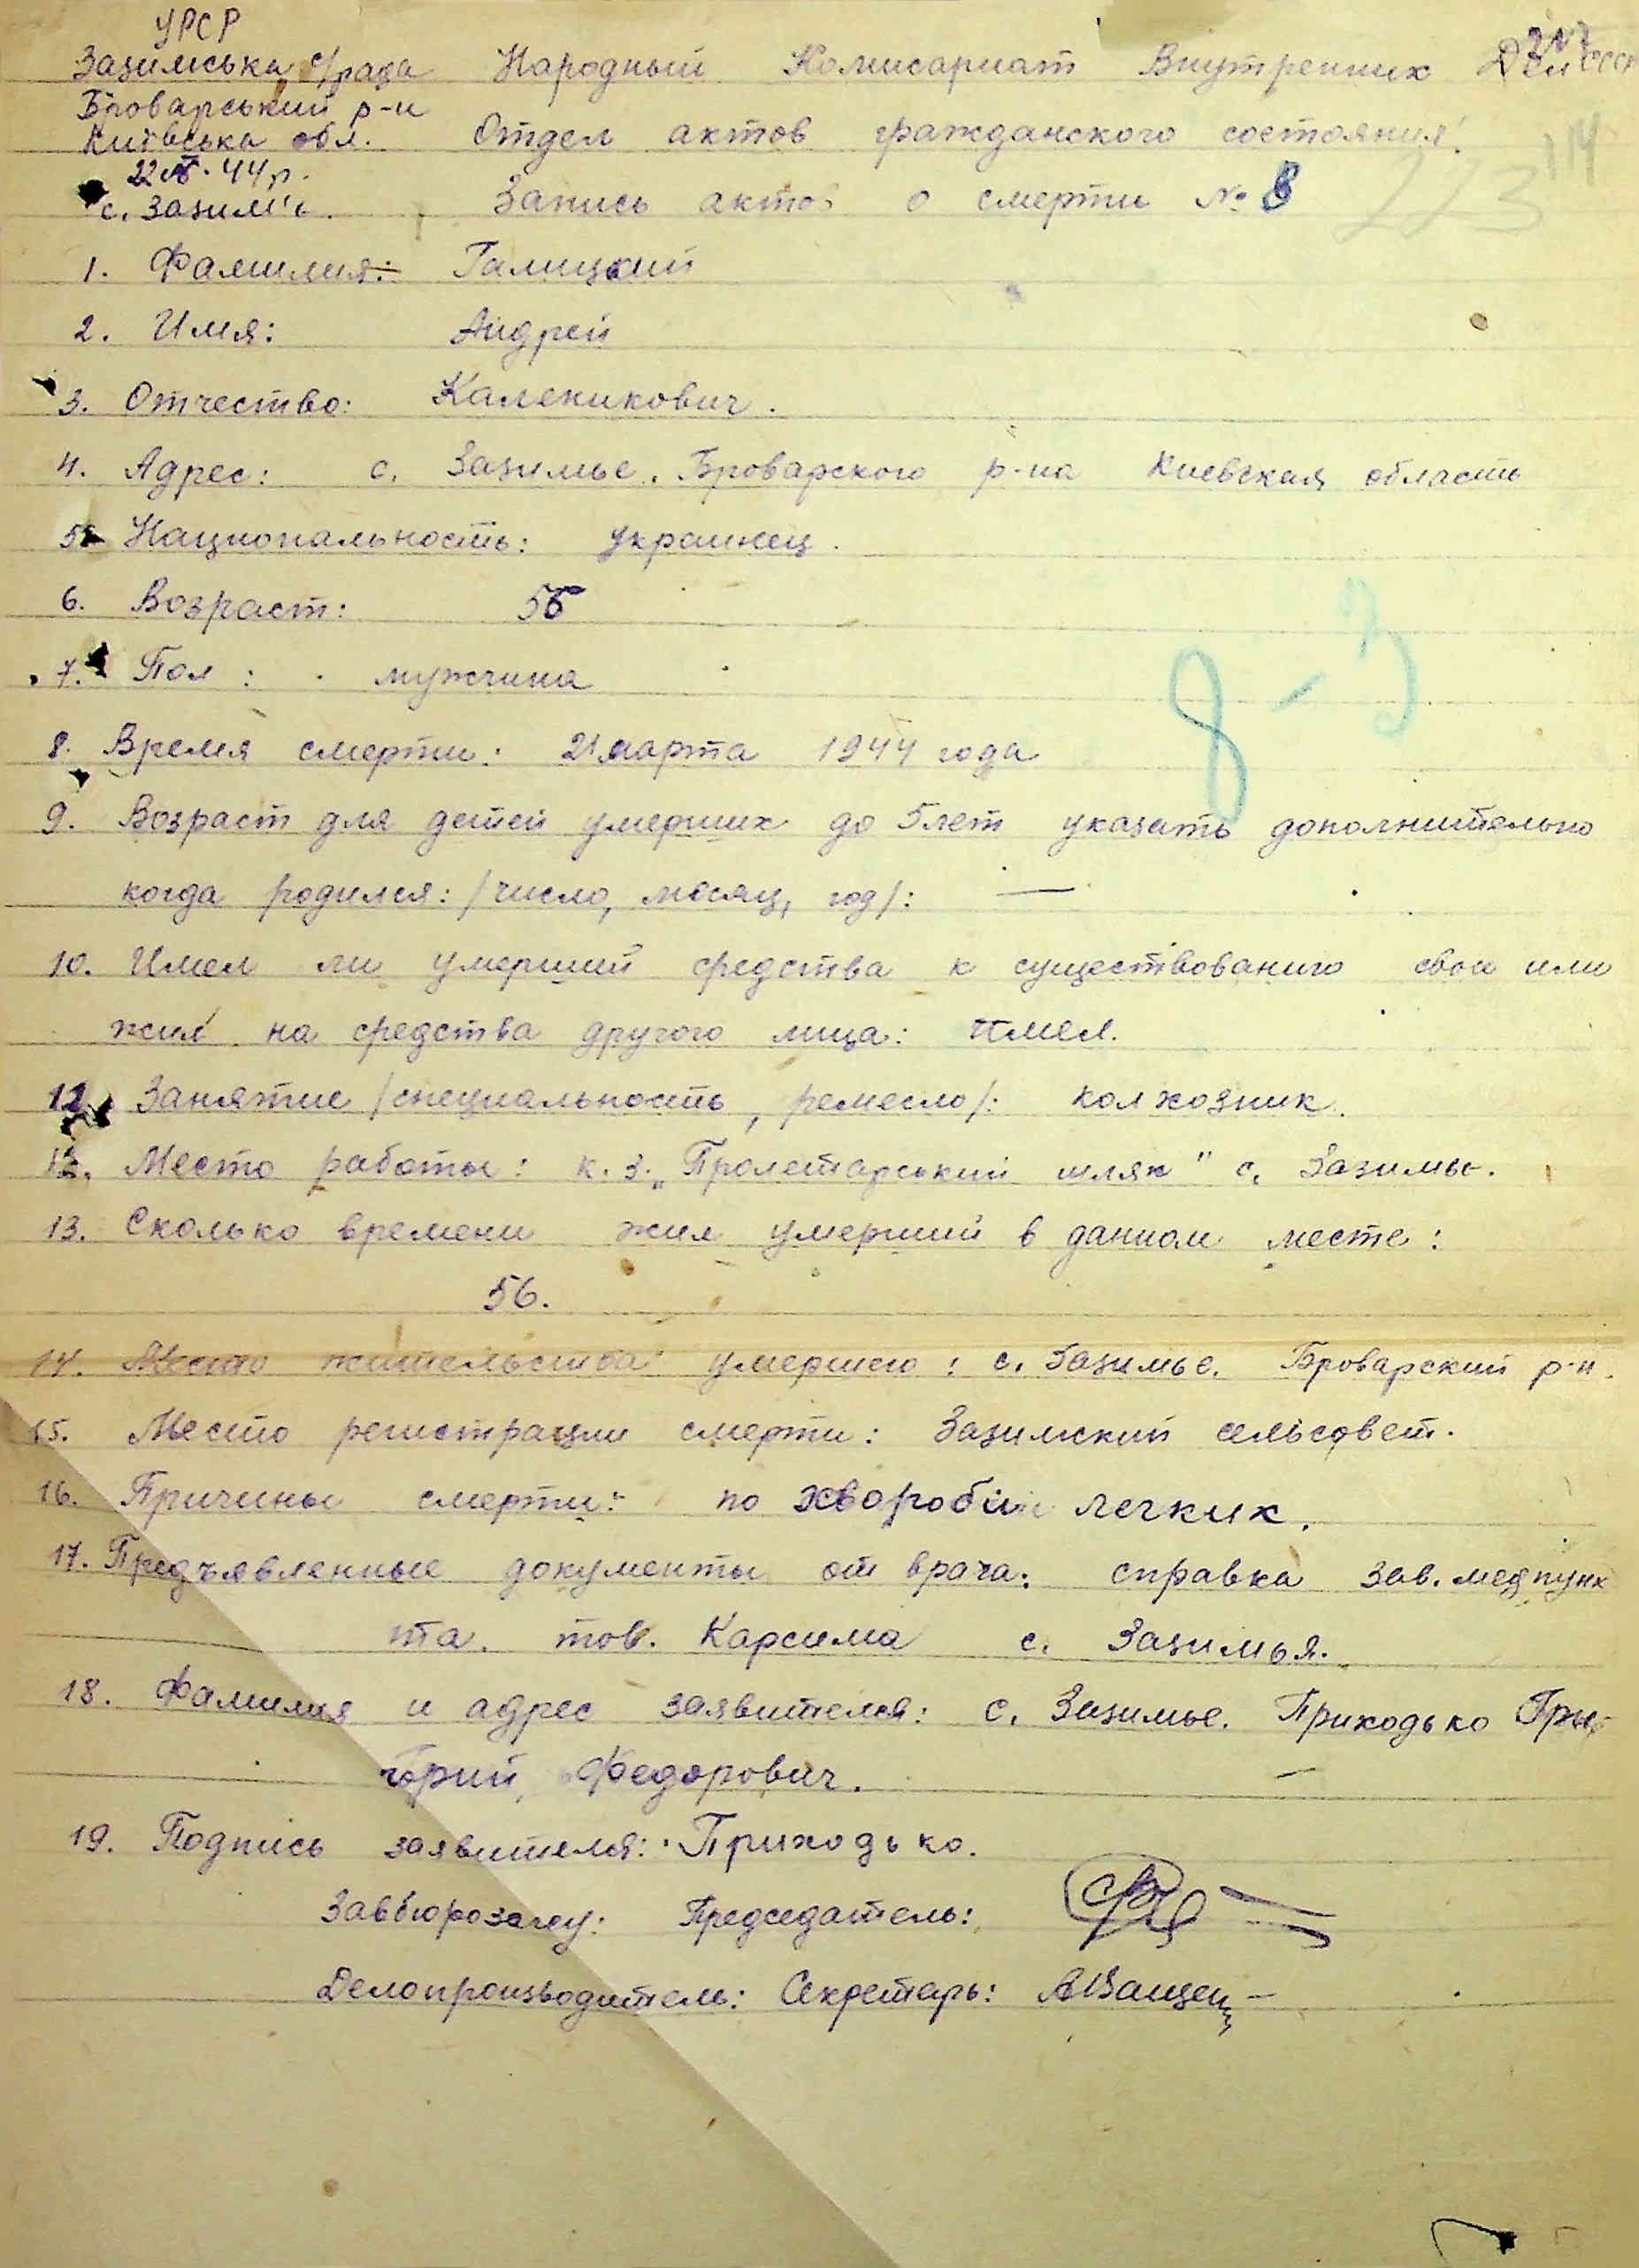 УРСР
Зазимська с/рада Народный Комисариат Внутренних Дел СССР
Броварський р-н
Київська обл. Отдел актов гражданского состояния.
22 44 р.
с. Зазим'є. Запись актов о смерти № 8
1. Фамилия: Галицкий
2. Имя: Андрей
3. Отчество: Каленикович.
4. Адрес: с. Зазимье. Броварского р-на Киевская область
5. Национальность: украинец.
6. Возраст: 56
7. Пол: мужчина
8 - 3
8. Время смерти: 21 марта 1944 года
9. Возраст для детей умерших до 5 лет указать дополнительно
когда родился: /число, месяц, год/: —
10. Имел ли умерший средства к существованию свои или
жил на средства другого лица: Имел.
Занятие /специальность, ремесло/: колхозник.
12. Место работы: к.з. „Пролетарський шлях" с. Зазимье.
13. Сколько времени жил умерший в данном месте:
56.
14. Место жительства умершего: с. Зазимье. Броварский р-н.
15. Место регистрации смерти: Зазимский сельсовет.
16. Причины смерти: по хворобі легких.
17. Предъявленные документы от врача: справка зав. медпунк
та. тов. Карсима с. Зазимья.
18. Фамилия и адрес заявителя: с. Зазимье. Приходько Гри-
горий Федорович.
19. Подпись заявителя: Приходько.
Завбюрозагсу: Председатель:
Делопроизводитель: Секретарь: АВащен